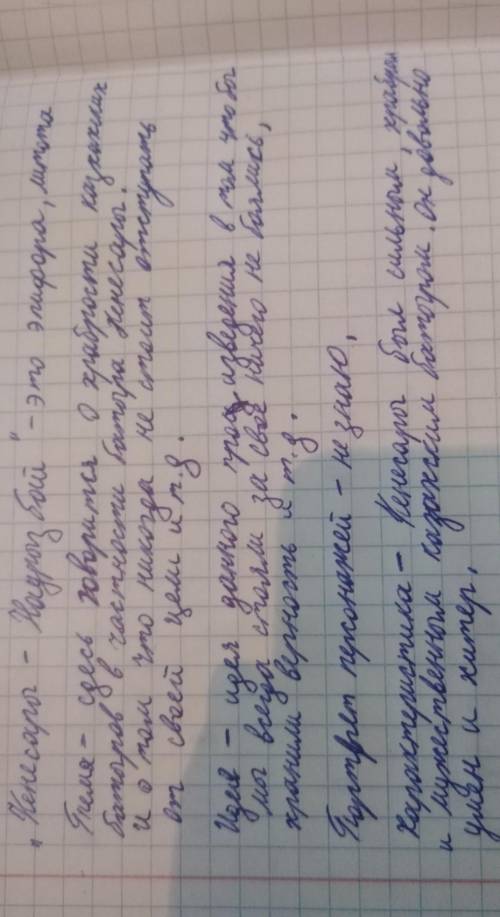 "Кенесары - Наурызбай" - это эпифора, литота
Тема - здесь говорится о храбрости казахских
батыров в частности батыра Кенесары.
И о том что никогда не стоит отступать
от своей цели и т.д.
Идея - идея данного произведения в том что бы
мы всегда стояли за своё ничего не боялись,
хранили верность и т.д.
Портрет персонажей - не знаю,
Характеристика - Кенесары был сильным, храбрым
и мужественным казахским батыром. Он довольно
умён и хитер,